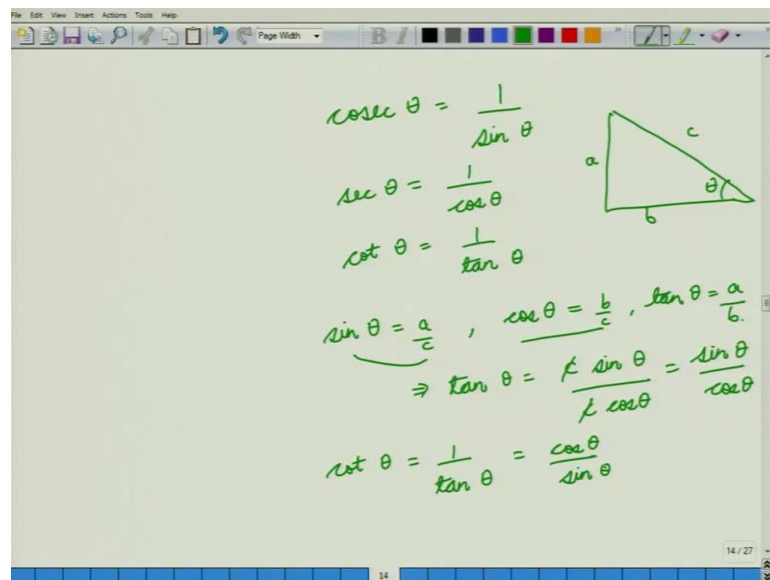 File Edit View Insert Actions Tools Help
Page Width B I
cosec θ = 1 / sin θ
a c θ b
sec θ = 1 / cos θ
cot θ = 1 / tan θ
sin θ = a/c , cos θ = b/c , tan θ = a/b.
⇒ tan θ = c sin θ / c cos θ = sin θ / cos θ
cot θ = 1 / tan θ = cos θ / sin θ
14 / 27
14